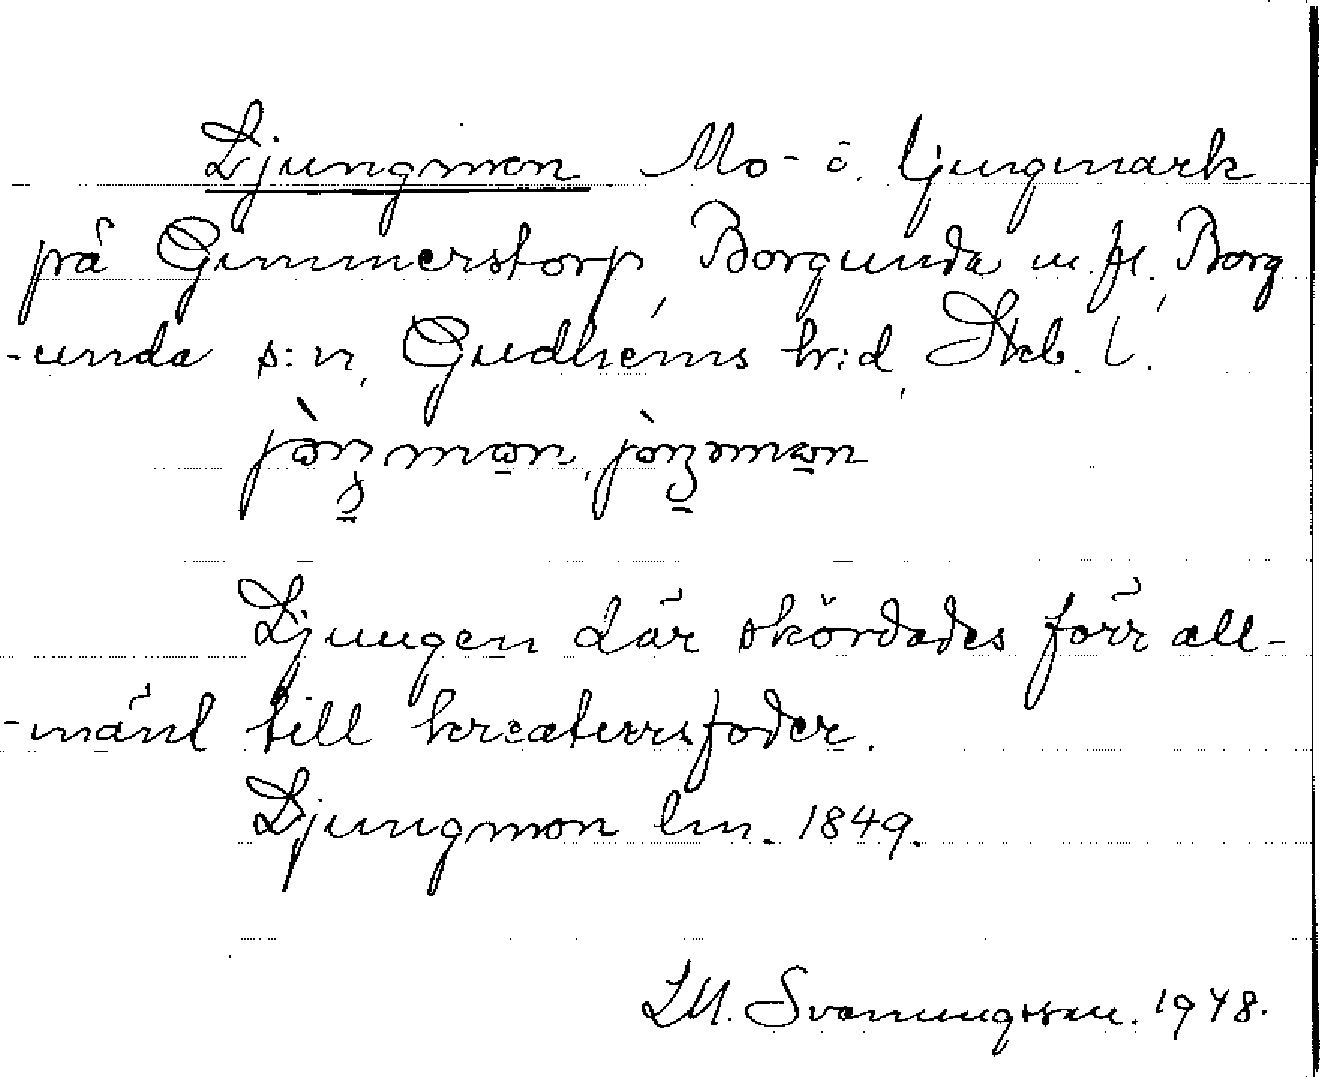 Ljungmon Mo- o. ljungmark
på Gimmerstorp, Borgunda m. fl., Borg
-unda s:n, Gudhems h:d, Skb. l.
Ljungen där skördades förr all-
-mänt till kreatursfoder.
Ljungmon lm. 1849.
LM. Svanungsson. 1948.